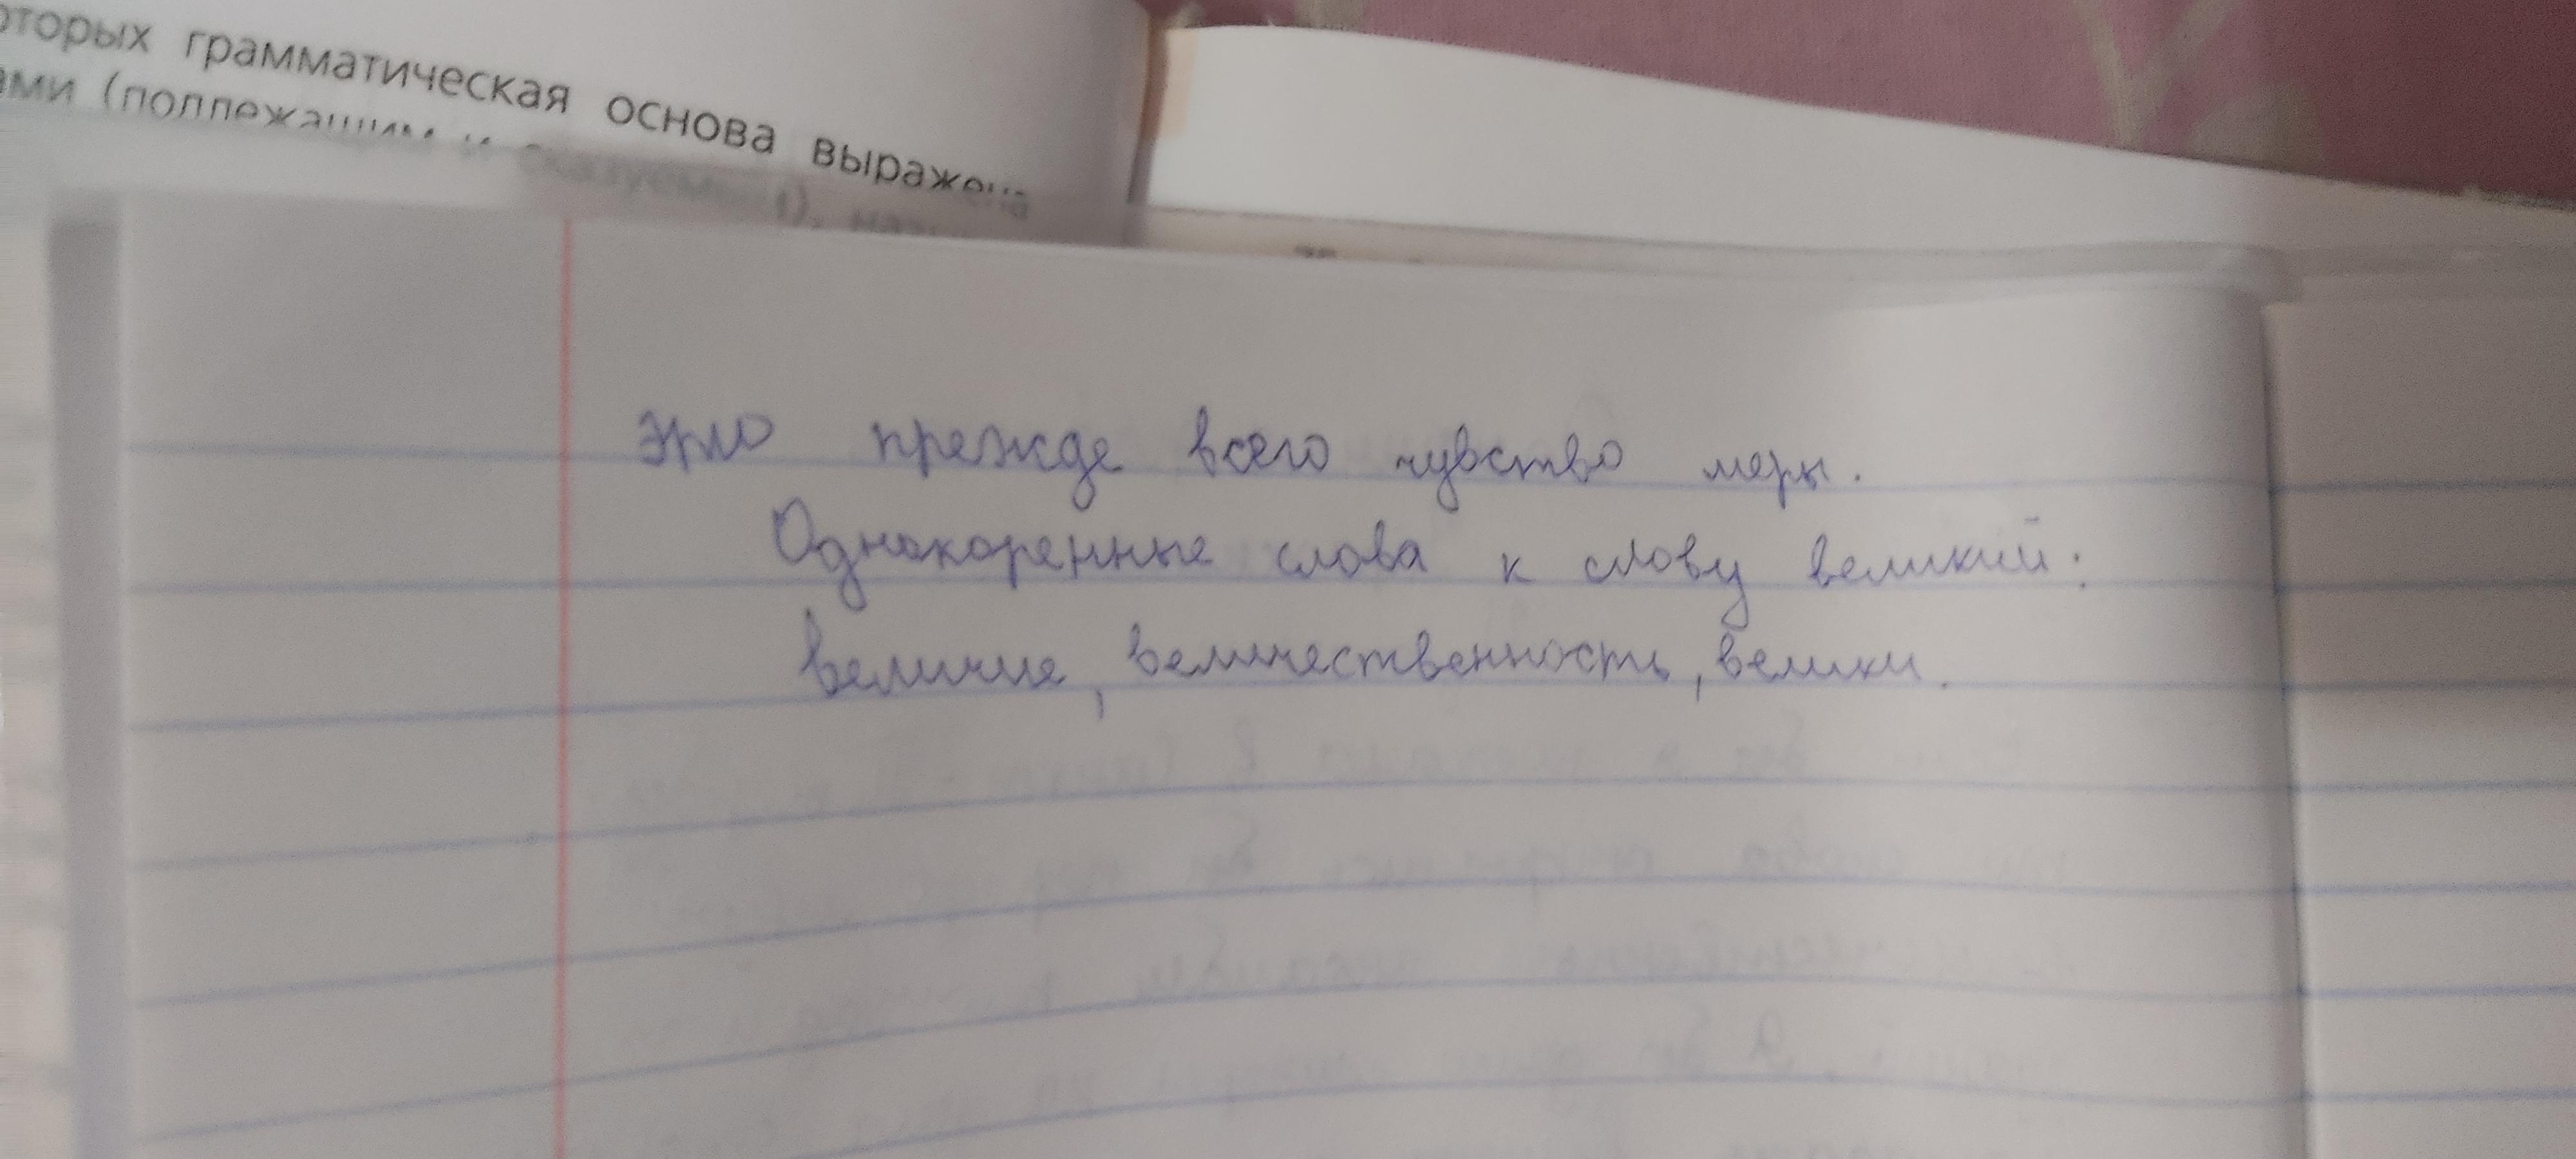 оторых грамматическая основа выражена
ами (подлежащим и сказуемым), назы
это прежде всего чувство меры.
Однокоренные слова к слову великий:
величие, величественность, велики.